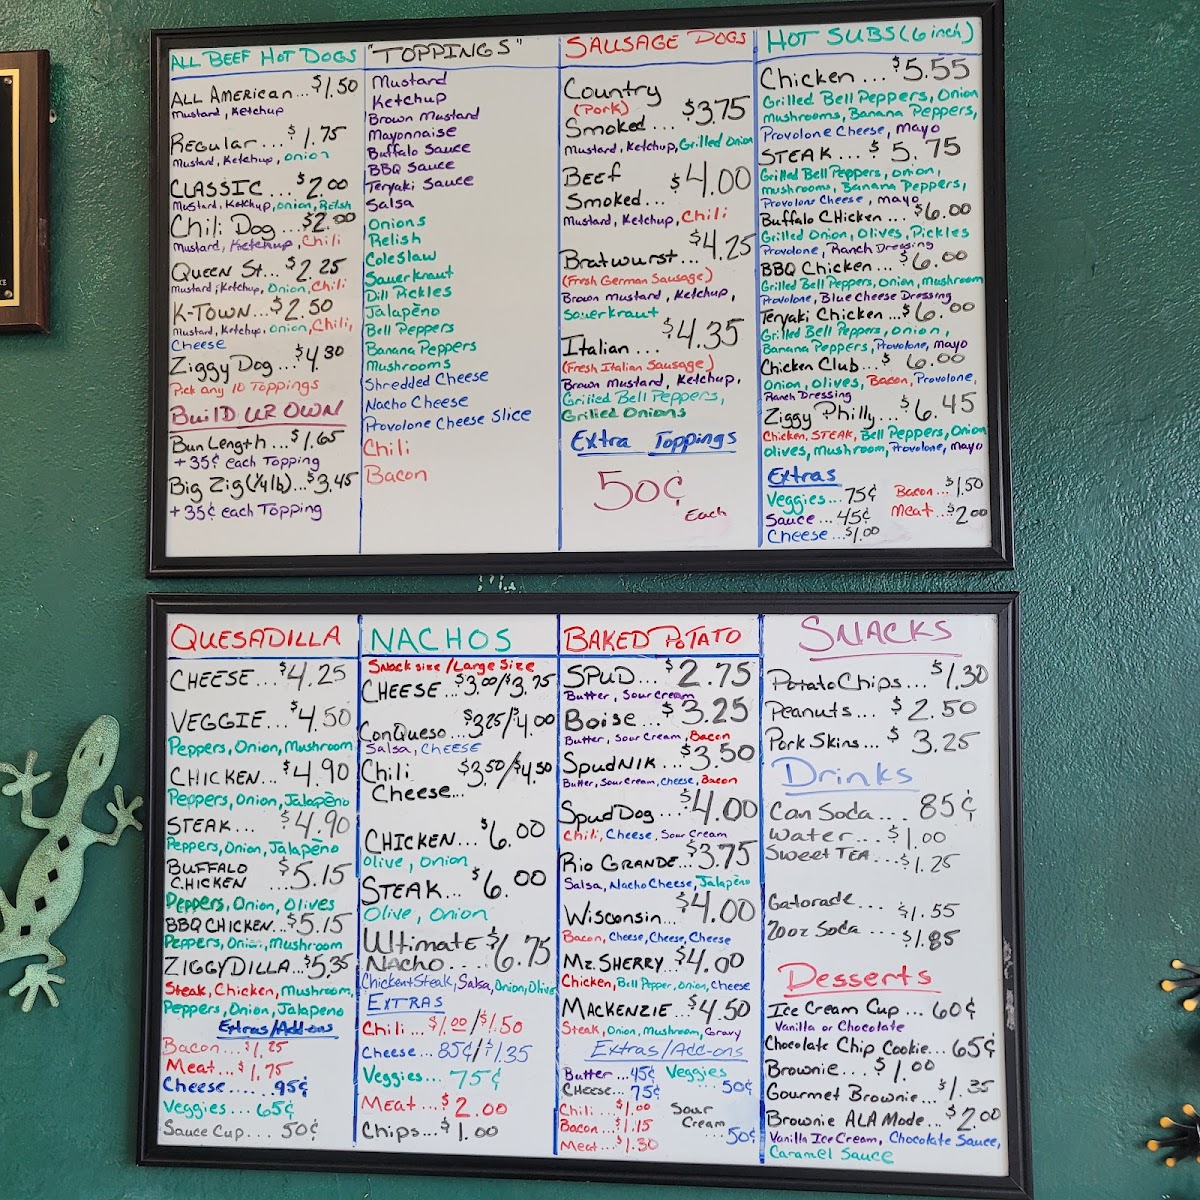 ALL BEEF HOT DOGS
ALL AMERICAN... $1.50
Mustard, Ketchup
Regular... $1.75
Mustard, Ketchup, Onion
CLASSIC... $2.00
Mustard, Ketchup, Onion, Relish
Chili Dog... $2.00
Mustard, Ketchup, Chili
QUEEN St... $2.25
Mustard, Ketchup, Onion, Chili
K-TOWN... $2.50
Mustard, Ketchup, Onion, Chili,
Cheese
Ziggy Dog... $4.30
Pick any 10 Toppings
BuilD UR OWN
Bun Length... $1.65
+35¢ each Topping
Big Zig (1/4 lb)... $3.45
+35¢ each Topping
"TOPPINGS"
Mustard
Ketchup
Brown Mustard
Mayonnaise
Buffalo Sauce
BBQ Sauce
Teryaki Sauce
Salsa
Onions
Relish
Coleslaw
Sauerkraut
Dill Pickles
Jalapèno
Bell Peppers
Banana Peppers
Mushrooms
Shredded Cheese
Nacho Cheese
Provolone Cheese Slice
Chili
Bacon
SAUSAGE DOGS
Country
(Pork)
Smoked... $3.75
Mustard, Ketchup, Grilled Onion
BEEF
Smoked... $4.00
Mustard, Ketchup, Chili
Bratwurst... $4.25
(Fresh German Sausage)
Brown Mustard, Ketchup,
Sauerkraut
Italian... $4.35
(Fresh Italian Sausage)
Brown Mustard, Ketchup,
Grilled Bell Peppers,
Grilled Onions
Extra Toppings
50¢
Each
HOT SUBS (6 inch)
Chicken... $5.55
Grilled Bell Peppers, Onion
mushrooms, Banana Peppers,
Provolone Cheese, Mayo
STEAK... $5.75
Grilled Bell Peppers, onion,
mushrooms, Banana Peppers,
Provolone Cheese, mayo
Buffalo CHicken... $6.00
Grilled Onion, Olives, Pickles
Provolone, Ranch Dressing
BBQ Chicken... $6.00
Grilled Bell Peppers, Onion, Mushroom
Provolone, Blue Cheese Dressing
Teryaki Chicken... $6.00
Grilled Bell Peppers, Onion,
Banana Peppers, Provolone, mayo
Chicken Club... $6.00
Onion, Olives, Bacon, Provolone,
Ranch Dressing
Ziggy Philly... $6.45
Chicken, STEAK, Bell Peppers, Onion
olives, Mushroom, Provolone, mayo
Extras
Veggies... 75¢
Sauce... 45¢
Cheese... $1.00
Bacon... $1.50
Meat... $2.00
QUESADILLA
CHEESE... $4.25
VEGGIE... $4.50
Peppers, Onion, Mushroom
CHICKEN... $4.90
Peppers, Onion, Jalapèno
STEAK... $4.90
Peppers, Onion, Jalapèno
BUFFALO
CHICKEN ...$5.15
Peppers, Onion, Olives
BBQ CHICKEN... $5.15
Peppers, Onion, Mushroom
ZIGGYDILLA... $5.35
Steak, Chicken, Mushroom,
Peppers, Onion, Jalapeno
Extras/Add-ons
Bacon... $1.25
Meat... $1.75
Cheese.... 95¢
Veggies.... 65¢
Sauce Cup... 50¢
NACHOS
Snack size/Large Size
CHEESE... $3.00/$3.75
ConQueso... $3.25/$4.00
Salsa, CHEESE
Chili $3.50/$4.50
Cheese...
CHICKEN... $6.00
Olive, Onion
STEAK... $6.00
Olive, Onion
UltimatE $6.75
Nacho....
Chicken+Steak, Salsa, Onion, Olive
EXTRAS
Chili... $1.00/$1.50
Cheese... 85¢/$1.35
Veggies... 75¢
MEAT... $2.00
Chips... $1.00
BAKED PoTATO
SPUD... $2.75
Butter, Sour Cream
Boise... $3.25
Butter, Sour Cream, Bacon
SPUDNIK... $3.50
Butter, Sour Cream, Cheese, Bacon
Spud Dog... $4.00
Chili, Cheese, Sour Cream
Rio GRANDE... $3.75
Salsa, Nacho Cheese, Jalapèno
Wisconsin... $4.00
Bacon, Cheese, Cheese, Cheese
Mz. SHERRY... $4.00
Chicken, Bell Pepper, Onion, Cheese
MACKENZIE... $4.50
Steak, Onion, Mushroom, Gravy
Extras/Add-ons
Butter ...45¢
CHEESE... 75¢
Chili... $1.00
Bacon... $1.15
Meat... $1.30
Veggies
... 50¢
Sour
Cream
... 50¢
SNACKS
Potato Chips... $1.30
Peanuts... $2.50
Pork Skins... $3.25
Drinks
Can Soda... 85¢
Water... $1.00
Sweet TEA... $1.25
Gatorade... $1.55
20oz Soda... $1.85
Desserts
Ice Cream Cup... 60¢
Vanilla or Chocolate
Chocolate Chip Cookie... 65¢
Brownie... $1.00
Gourmet Brownie... $1.35
Brownie ALA Mode... $2.00
Vanilla Ice Cream, Chocolate Sauce,
Caramel Sauce